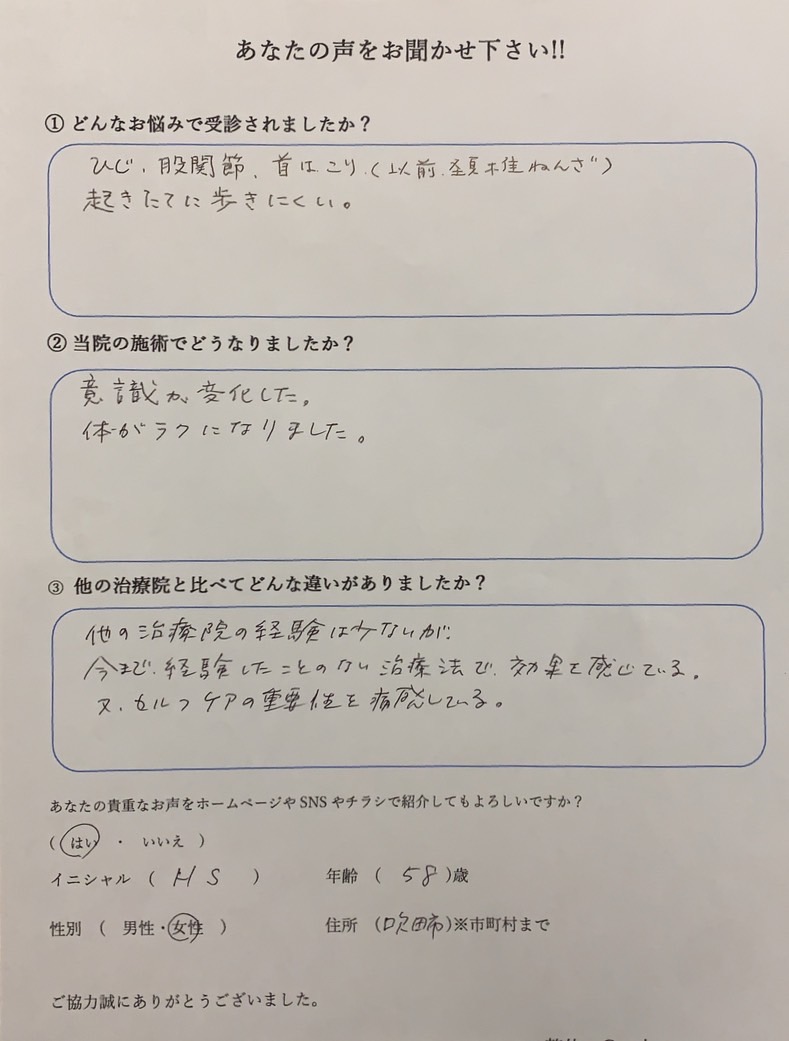 あなたの声をお聞かせ下さい!!
① どんなお悩みで受診されましたか？
ひじ、股関節、首は、こり、(以前、頚椎ねんざ)
起きたてに歩きにくい。
② 当院の施術でどうなりましたか？
意識が変化した。
体がラクになりました。
③ 他の治療院と比べてどんな違いがありましたか？
他の治療院の経験は少ないが、
今まで、経験したことのない治療法で、効果を感じている。
又、セルフケアの重要性を痛感している。
あなたの貴重なお声をホームページやSNSやチラシで紹介してもよろしいですか？
( はい ・ いいえ )
イニシャル ( H S ) 年齢 ( 58 )歳
性別 ( 男性・女性 ) 住所 (吹田市)※市町村まで
ご協力誠にありがとうございました。